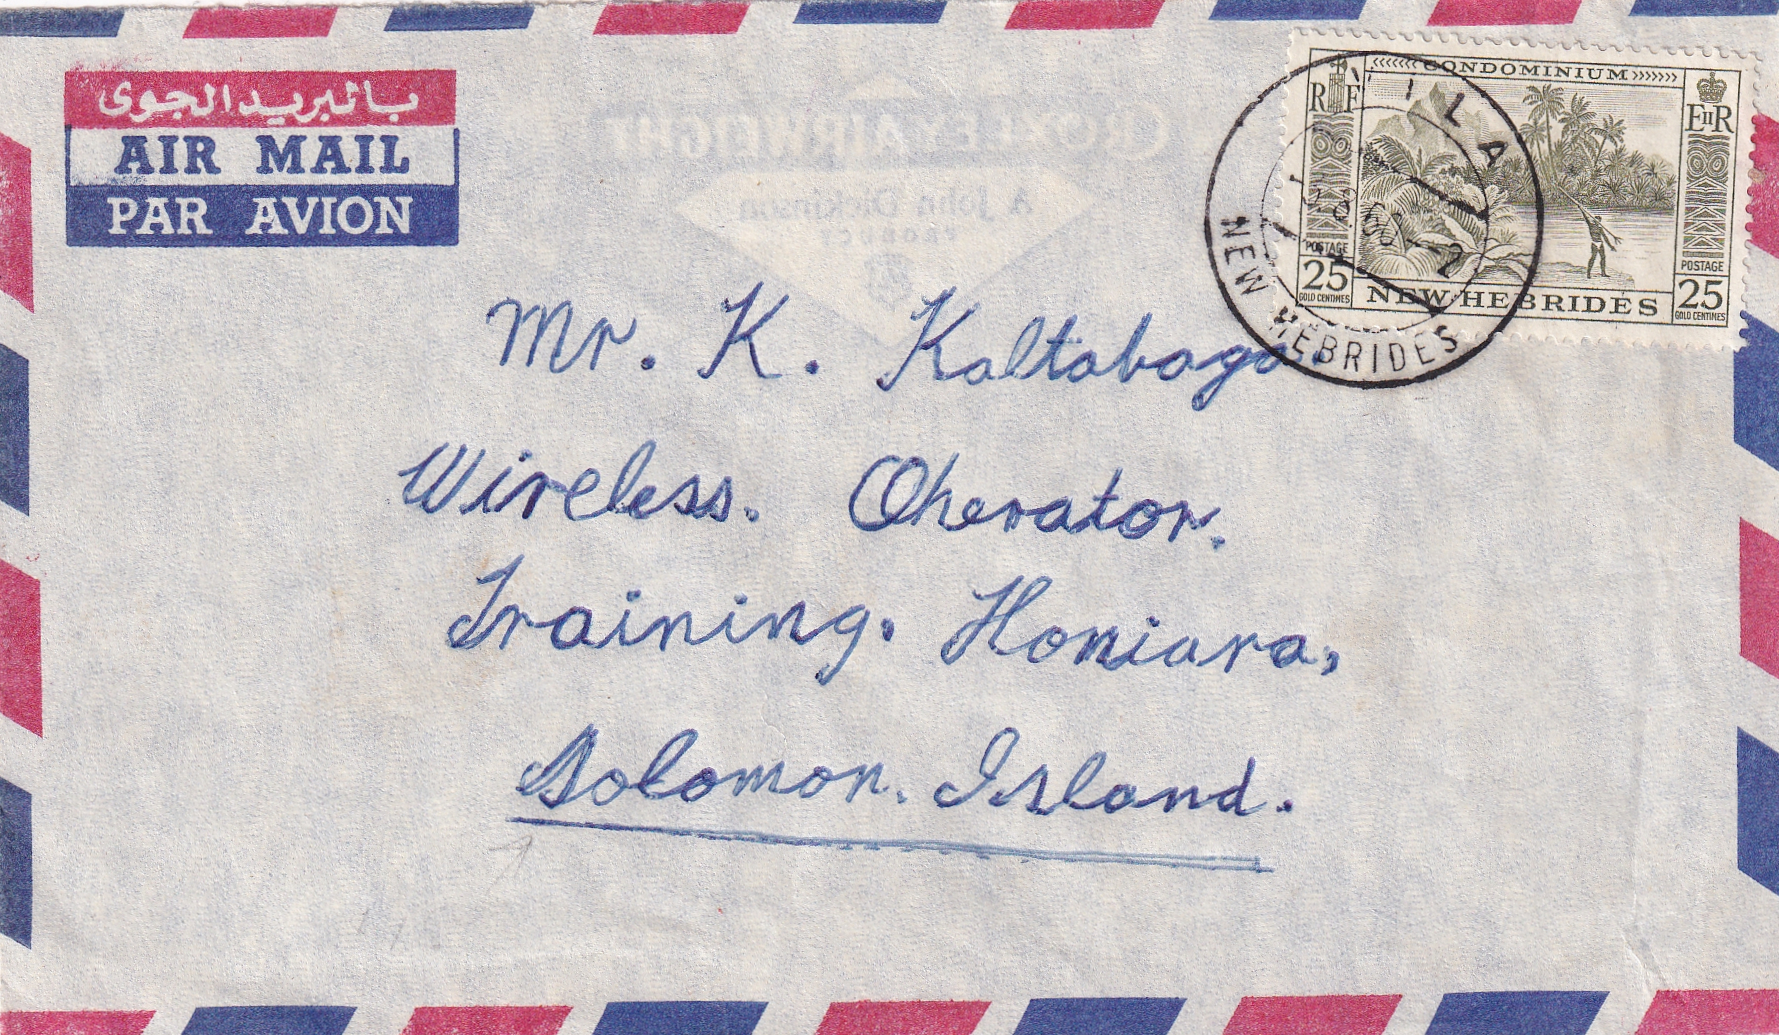 بالبريد الجوى
AIR MAIL
PAR AVION
CROXLEY AIRWEIGHT
A John Dickinson
PRODUCT
<<<<<< CONDOMINIUM >>>>>>
RF
EIIR
POSTAGE
25
GOLD CENTIMES
NEW HEBRIDES
POSTAGE
25
GOLD CENTIMES
VILA
NEW HEBRIDES
Mr. K. Kaltabaga.
Wireless. Oherator.
Training. Honiara,
Solomon. Island.